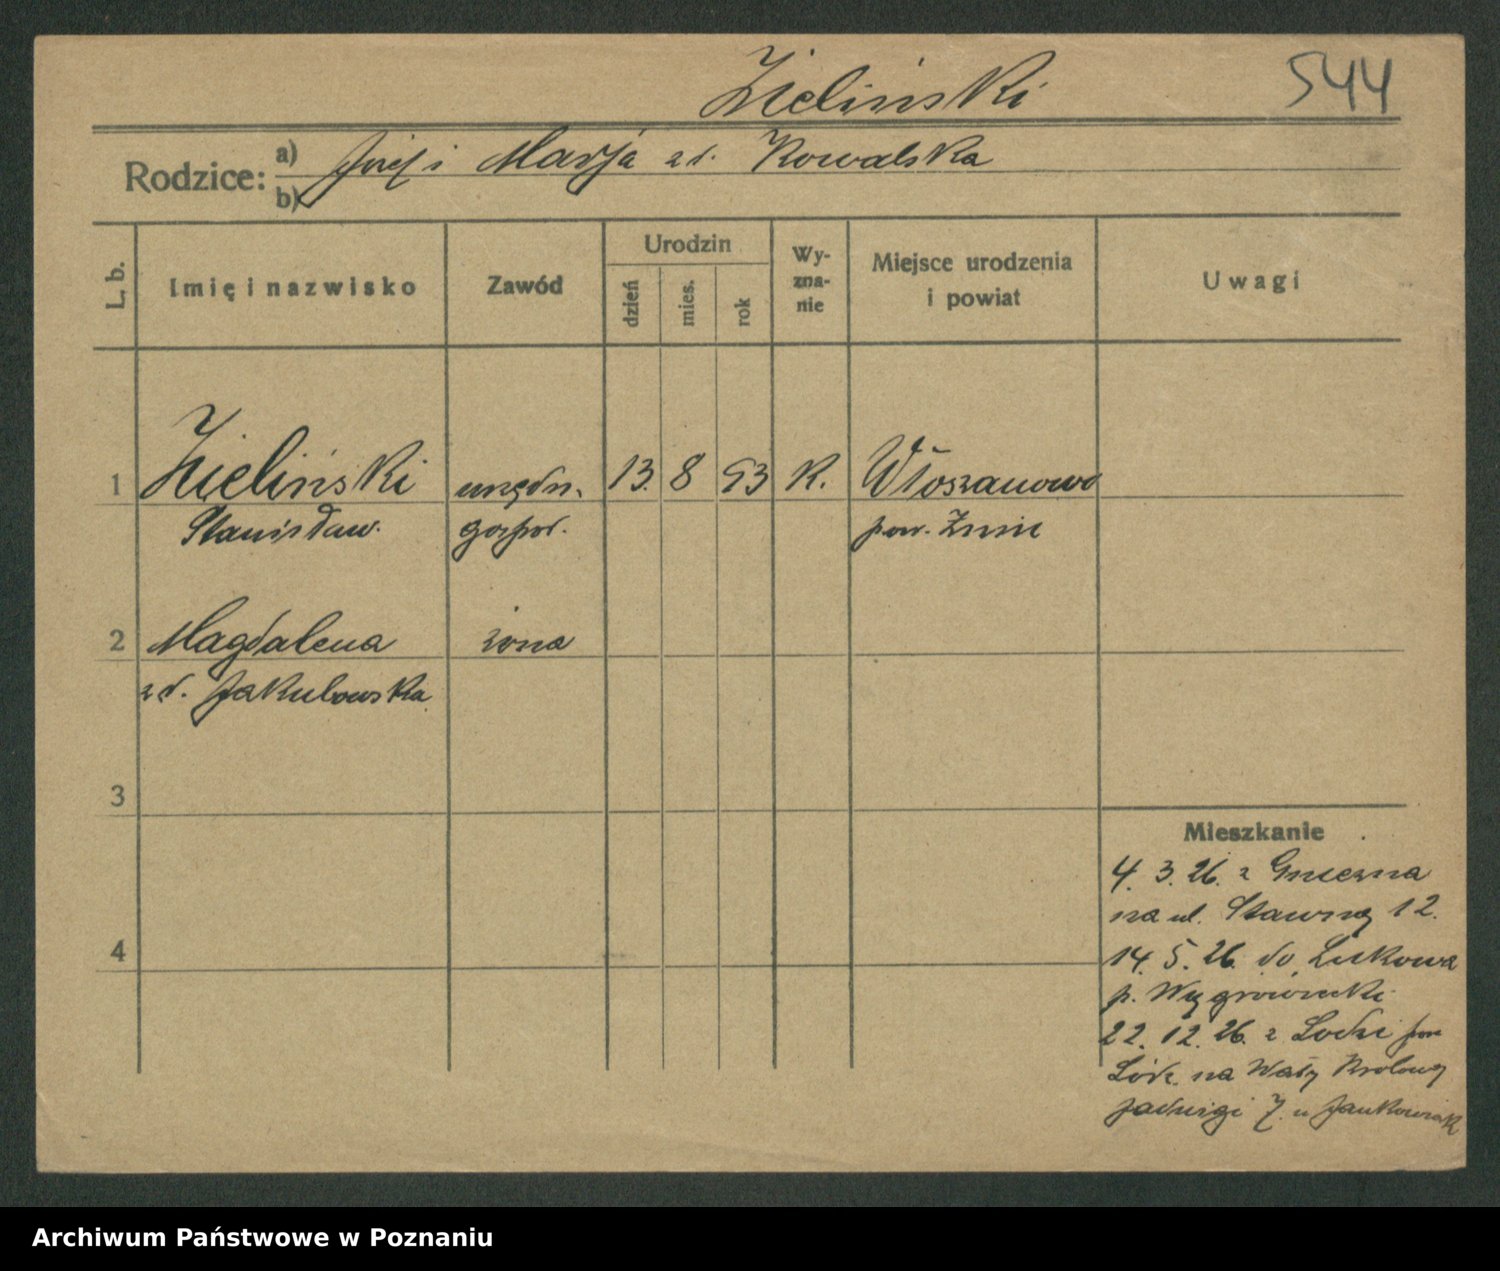 Zieliński 544
Rodzice: a) Józef i Marja zd. Kowalska
b)
L. b. Imię i nazwisko Zawód Urodzin dzień mies. rok Wy-zna-nie Miejsce urodzenia i powiat Uwagi
1 Zieliński urzędn. 13. 8 93 K. Włoszanowo
Stanisław. gospod. pow. Żnin
2 Magdalena żona
zd. Jakubowska
3
Mieszkanie
4. 3. 26. z Gniezna
na ul. Stawną 12.
4
14. 5. 26. do Łukowa
p. Wągrowiecki
22. 12. 26. z pow
Łódź. na Wały Królowej
Jadwigi 7. u Jankowiak
Archiwum Państwowe w Poznaniu